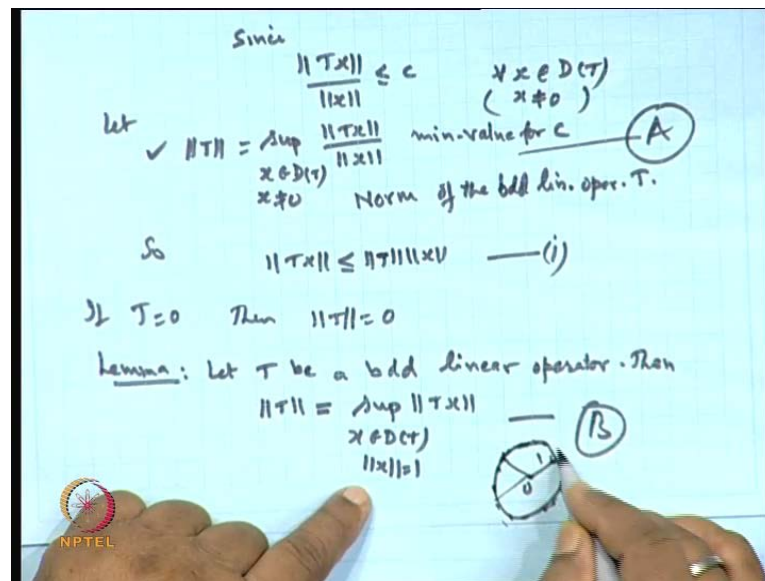 Since
||Tx|| / ||x|| ≤ c   ∀ x ∈ D(T)
( x ≠ 0 )
Let
✓ ||T|| = Sup ||Tx|| / ||x||   min-value for C —— (A)
x ∈ D(T)
x ≠ 0   Norm of the bdd lin. oper. T.
So   ||Tx|| ≤ ||T|| ||x||   —— (i)
If T=0   Then   ||T|| = 0
Lemma: Let T be a bdd linear operator. Then
||T|| = Sup ||Tx||   —— (B)
x ∈ D(T)
||x||=1
1
0
NPTEL